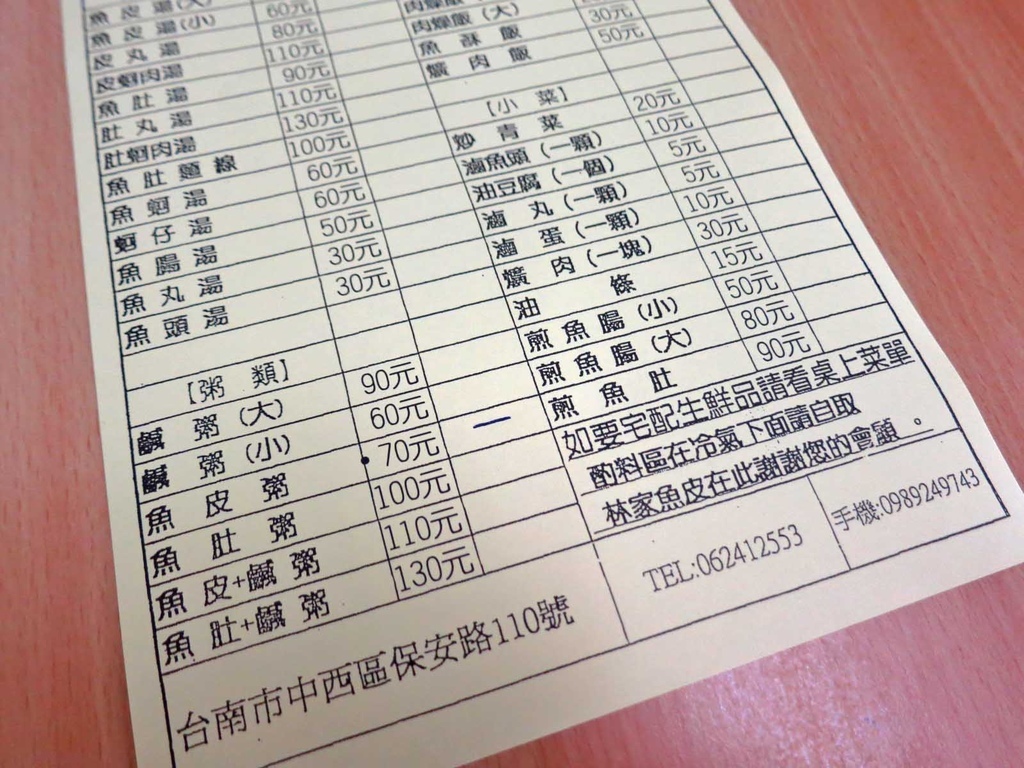 魚皮湯(大)
魚皮湯(小) 60元
皮丸湯 80元
皮蚵肉湯 110元
魚肚湯 90元
肚丸湯 110元
肚蚵肉湯 130元
魚肚麵線 100元
魚蚵湯 60元
蚵仔湯 60元
魚腸湯 50元
魚丸湯 30元
魚頭湯 30元
[粥 類]
鹹粥(大) 90元
鹹粥(小) 60元
魚皮粥 70元
魚肚粥 100元
魚皮+鹹粥 110元
魚肚+鹹粥 130元
肉燥飯(大)
魚酥飯 30元
爌肉飯 50元
[小菜]
炒青菜 20元
滷魚頭(一顆) 10元
油豆腐(一個) 5元
滷丸(一顆) 5元
滷蛋(一顆) 10元
爌肉(一塊) 30元
油條 15元
煎魚腸(小) 50元
煎魚腸(大) 80元
煎魚肚 90元
如要宅配生鮮品請看桌上菜單
酌料區在冷氣下面請自取
林家魚皮在此謝謝您的會顧。
台南市中西區保安路110號
TEL:062412553
手機:0989249743